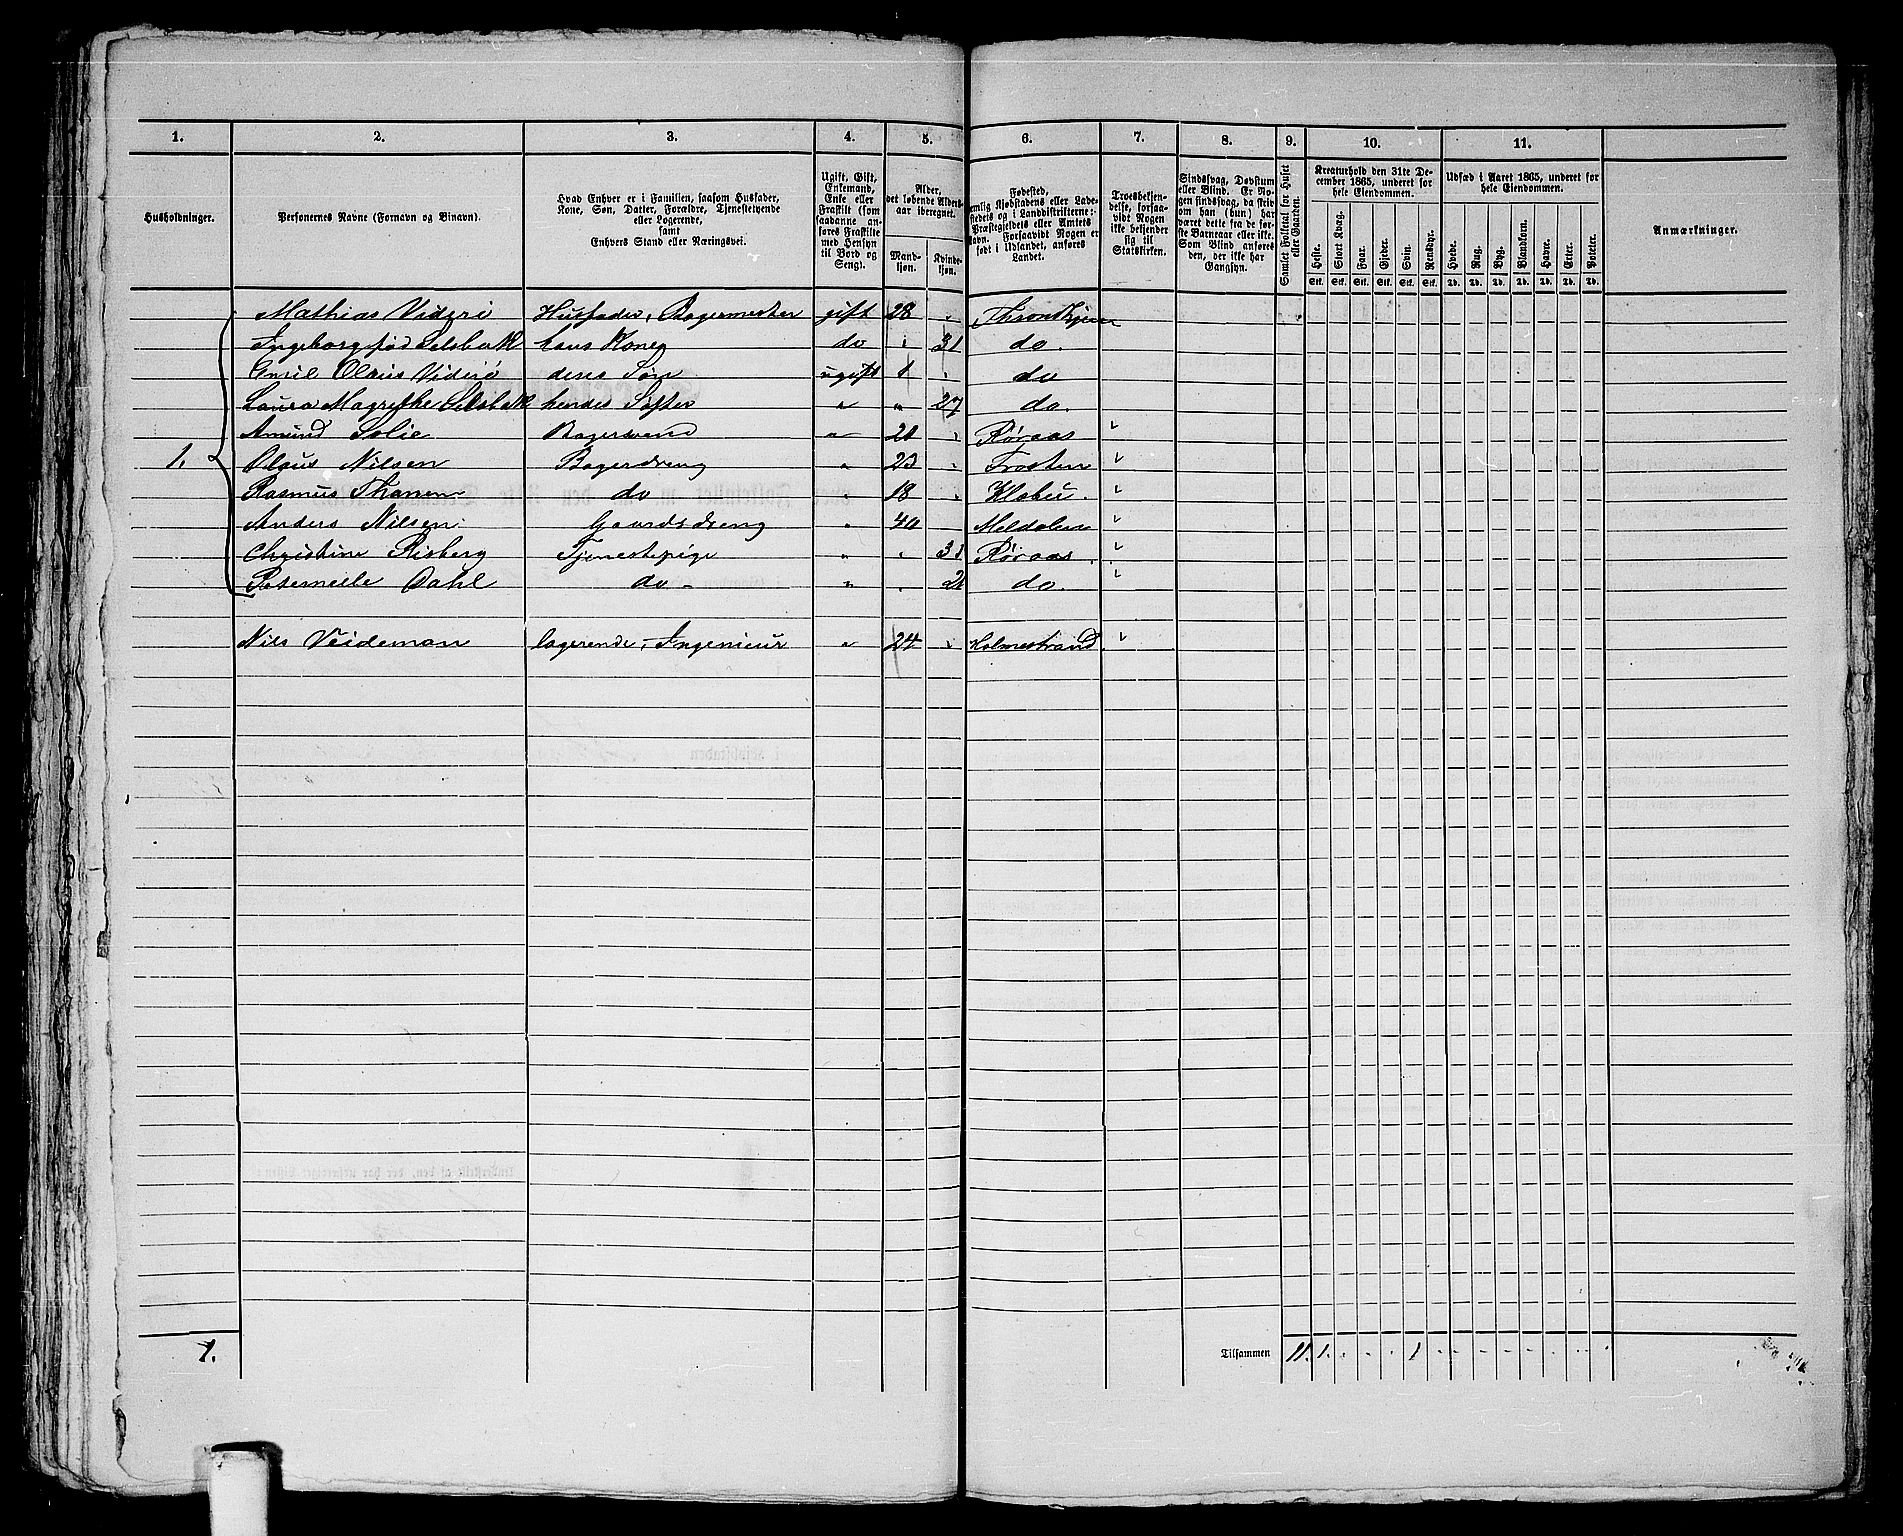 1. 2. 3. 4. 5. 6. 7. 8. 9. 10. 11.
Husholdninger.
Personernes Navne (Fornavn og Binavn).
Hvad Enhver er i Familien, saasom Husfader,
Kone, Søn, Datter, Forældre, Tjenestetyende
eller Logerende,
samt
Enhvers Stand eller Næringsvei.
Ugift, Gift,
Enkemand,
Enke eller
Fraskilt (som
saadanne an-
føres Fraskilte
med Hensyn
til Bord og
Seng).
Alder,
det løbende Alders-
aar iberegnet.
Mand-
kjøn.
Kvinde-
kjøn.
Fødested,
nemlig Kjøbstadens eller Lade-
stedets og i Landdistrikterne:
Præstegjeldets eller Amtets
Navn. Forsaavidt Nogen er
født i Udlandet, anføres
Landet.
Troesbekjen-
delse, forsaa-
vidt Nogen
ikke bekjender
sig til
Statskirken.
Sindssvag, Døvstum
eller Blind. Er No-
gen sindssvag, da skriv
om han (hun) har
været dette fra de før-
ste Barneaar eller ikke.
Som Blind anføres
den, der ikke har
Gangsyn.
Samlet Folketal for Huset
eller Gaarden.
Kreaturhold den 31te De-
cember 1865, underet for
hele Eiendommen.
Heste. Stort Kvæg. Faar. Gjeder. Svin. Rensdyr.
Stk. Stk. Stk. Stk. Stk. Stk.
Udsæd i Aaret 1865, underet for
hele Eiendommen.
Hvede. Rug. Byg. Blandkorn. Havre. Erter. Poteter.
Td. Td. Td. Td. Td. Td. Td.
Anmærkninger.
Mathias Viderö Husfader, Bagermester gift 28 " Throndhjem
Ingeborg född Selsbak hans Kone do " 31 do.
Emil Olaus Viderö deres Søn ugift 1 " do
Laura Magrethe Selsbak hendes Søster " " 27 do.
Amund Solie Bagersvend " 21 " Røraas
1. Olaus Nilsen Bagerdreng " 23 "
Rasmus Thanem do " 18 " Klæbu.
Anders Nilsen Gaardsdreng " 40 Meldalen
Christine Risberg Tjenestepige " " Røraas
Dahl do " " do.
Nils Veideman logerende, Ingenieur " 24 " Holmestrand
1. Tilsammen 11. 1. " " " 1 " " " " " " " "